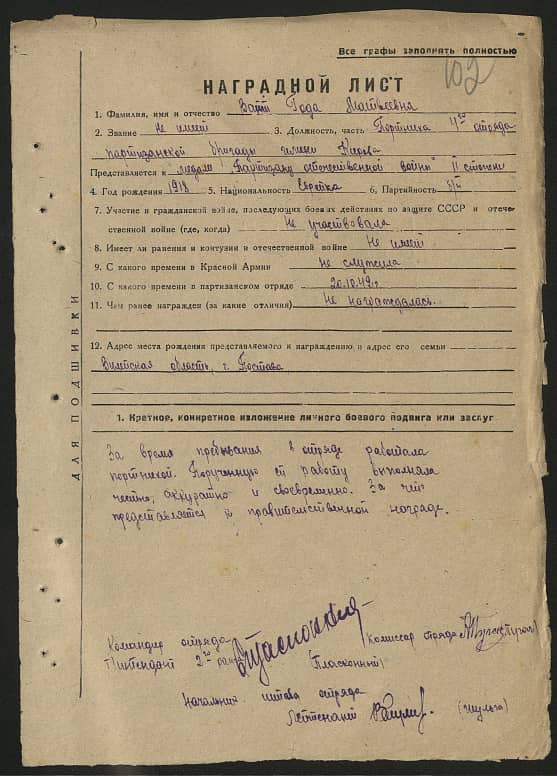 Все графы заполнять полностью
102
НАГРАДНОЙ ЛИСТ
1. Фамилия, имя и отчество Года Матвеевна
2. Звание не имеет 3. Должность, часть Портниха 4го отряда
партизанской бригады имени Кирова
Представляется к медали "Партизану отечественной войны" II степени
4. Год рождения 1918 5. Национальность еврейка 6. Партийность б/п
7. Участие в гражданской войне, последующих боевых действиях по защите СССР и отече-
ственной войне (где, когда) Не участвовала
8. Имеет ли ранения и контузии в отечественной войне Не имеет.
9. С какого времени в Красной Армии не служила
10. С какого времени в партизанском отряде
11. Чем ранее награжден (за какие отличия) Не награждалась.
12. Адрес места рождения представляемого к награждению и адрес его семьи
Вилейская область, г. Постава
1. Краткое, конкретное изложение личного боевого подвига или заслуг
За время пребывания в отряде работала
портнихой. Порученную ей работу выполняла
честно, аккуратно и своевременно. За что
представляется к правительственной награде.
Командир отряда Комиссар отряда
Интендант 2го ранга (Пласконный)
Начальник штаба отряда
Лейтенант (Шульга)
ДЛЯ ПОДШИВКИ